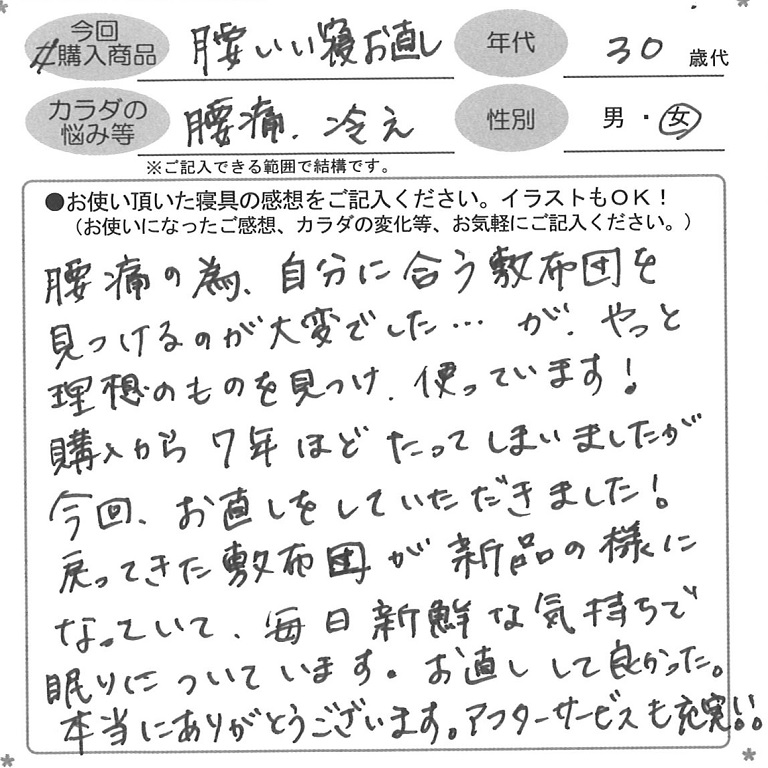 今回
購入商品 腰いい寝お直し 年代 30 歳代
カラダの
悩み等 腰痛、冷え 性別 男・女
※ご記入できる範囲で結構です。
●お使い頂いた寝具の感想をご記入ください。イラストもOK!
(お使いになったご感想、カラダの変化等、お気軽にご記入ください。)
腰痛の為、自分に合う敷布団を
見つけるのが大変でした…が、やっと
理想のものを見つけ、使っています!
購入から7年ほどたってしまいましたが
今回、お直しをしていただきました!
戻ってきた敷布団が新品の様に
なっていて、毎日新鮮な気持ちで
眠りについています。お直しして良かった。
本当にありがとうございます。アフターサービスも充実!!